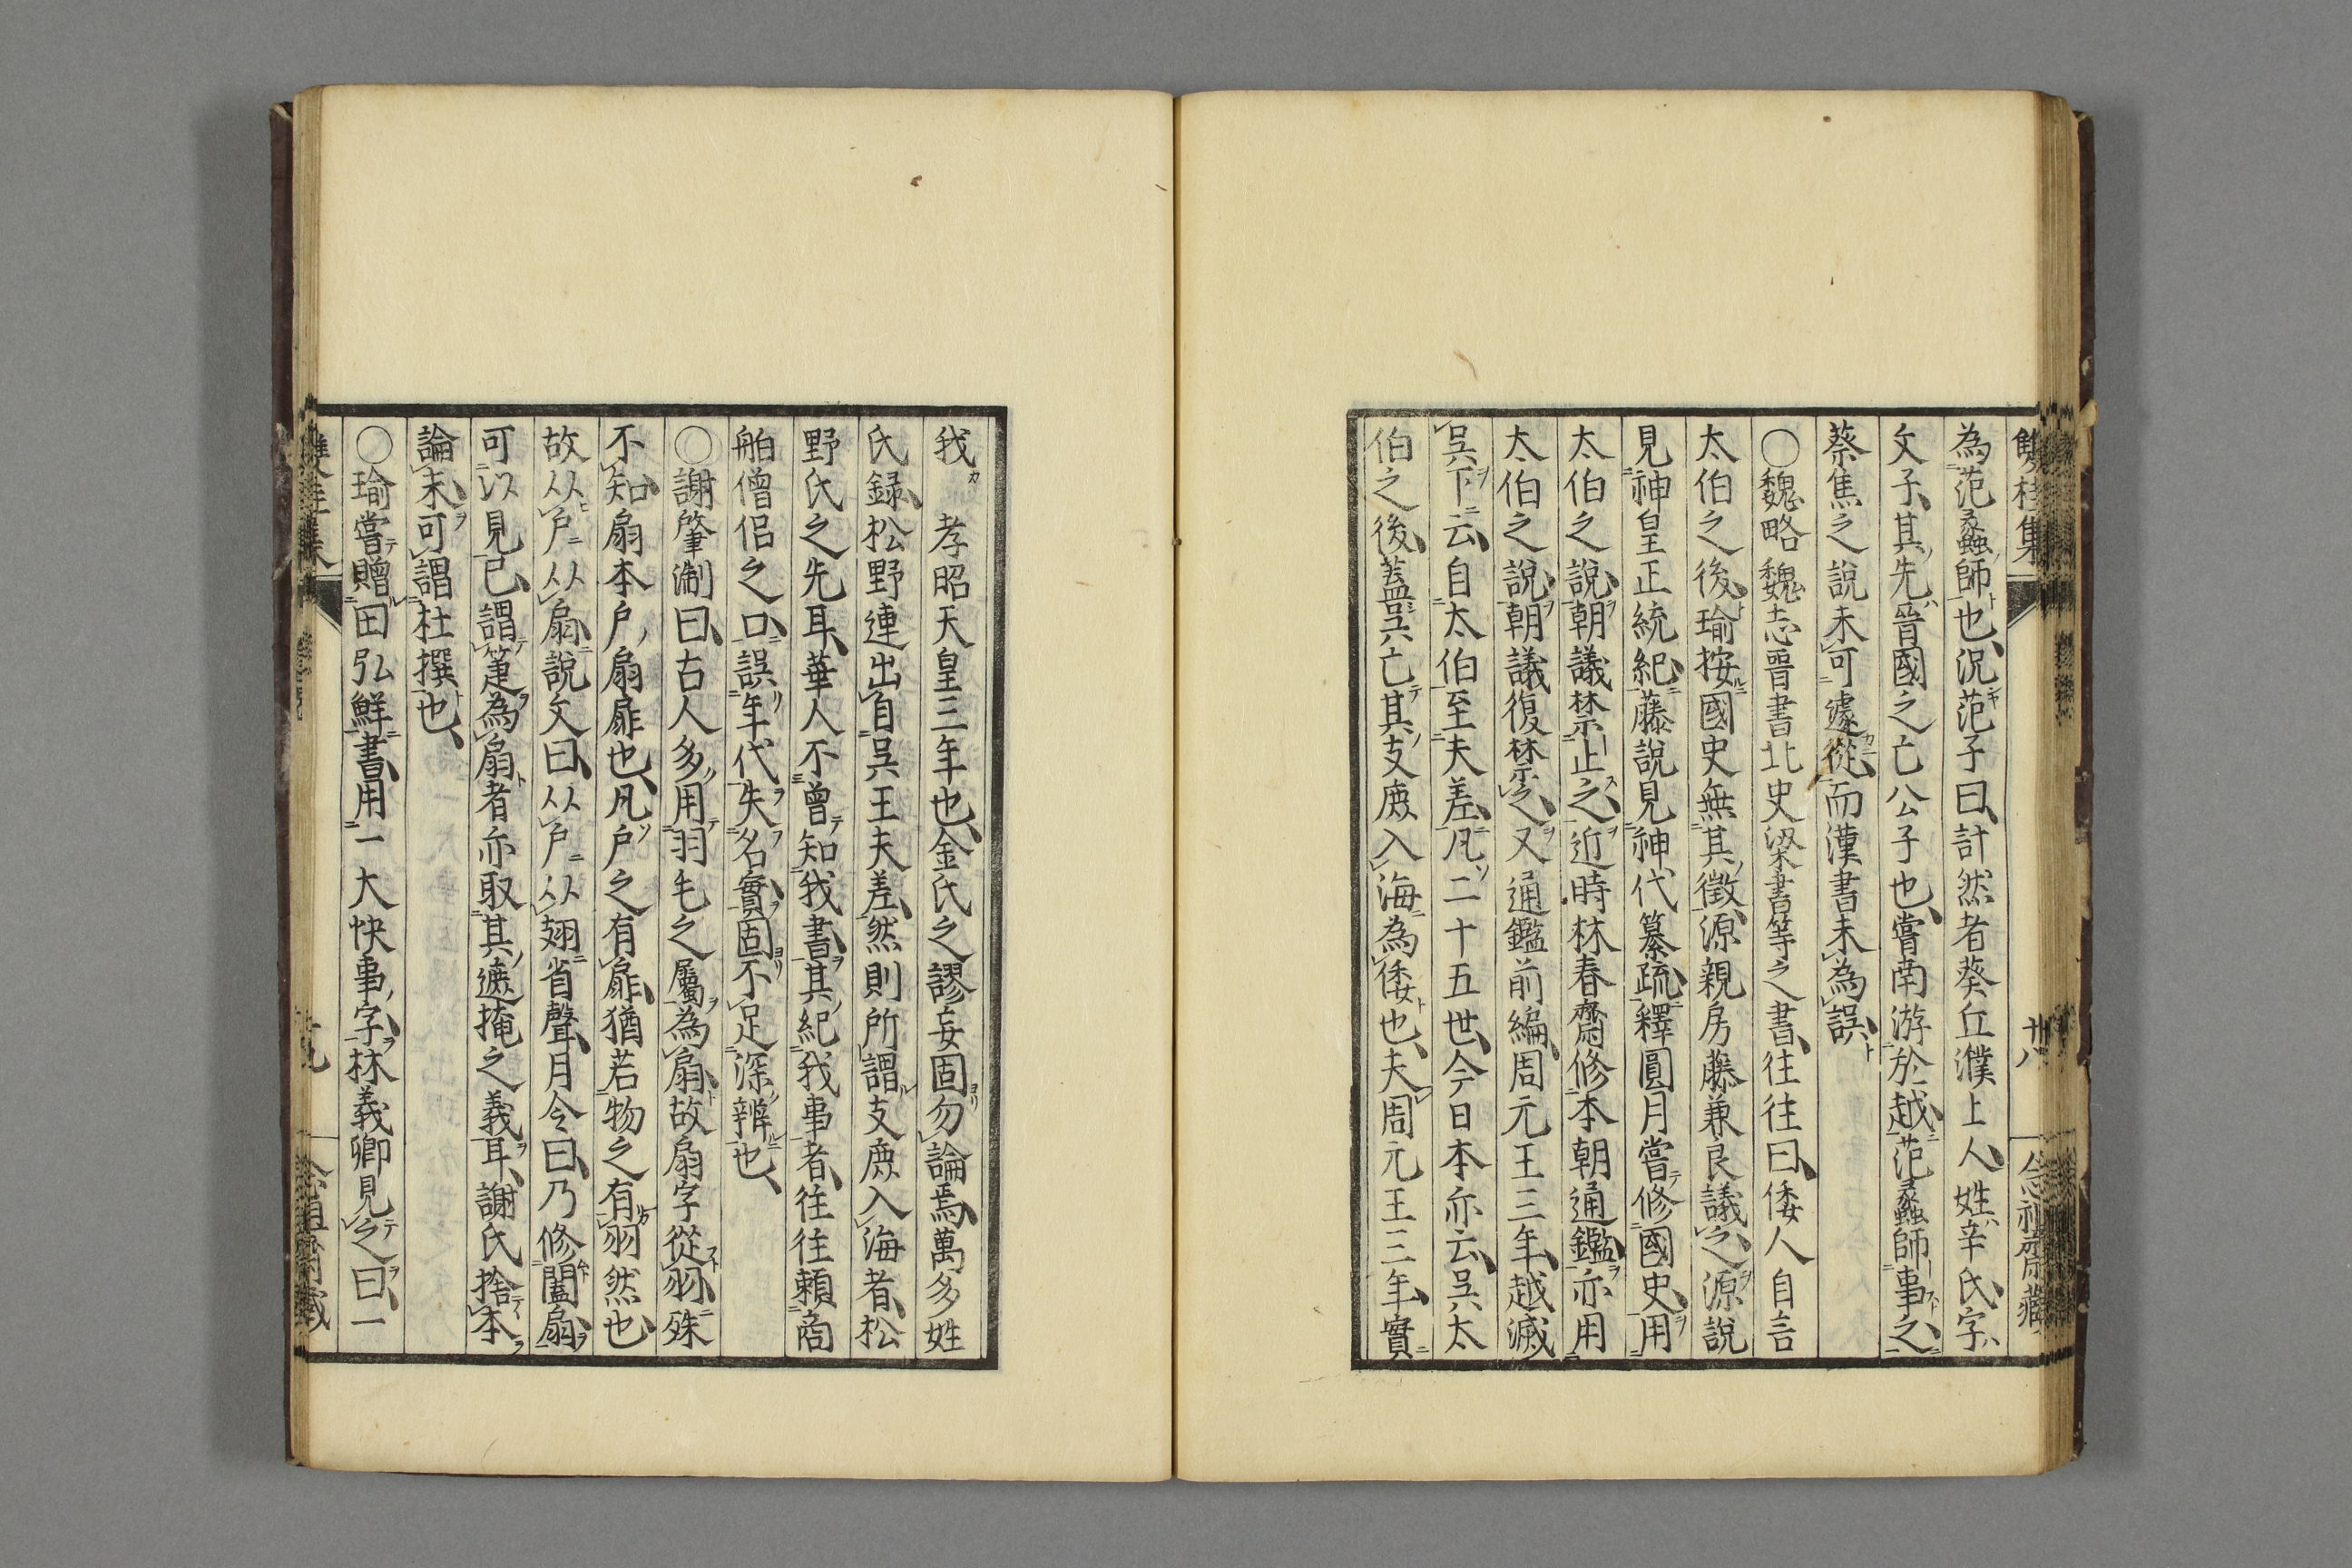 雙桂集
卅八
念祖齋藏
為范蠡師也、況范子曰、計然者葵丘濮上人、姓辛氏、字
文子、其先晉國之亡公子也、嘗南游於越、范蠡師事之、
蔡焦之說未可遽從、而漢書未為誤、
〇魏略魏志晉書北史梁書等之書、往往曰、倭人自言
太伯之後、瑜按國史無其徵、源親房藤兼良議之、源說
見神皇正統紀、藤說見神代纂疏、釋圓月嘗修國史、用
太伯之說、朝議禁止之、近時林春齋修本朝通鑑、亦用
太伯之說、朝議復禁之、又通鑑前編、周元王三年、越滅
吳下云、自太伯至夫差、凡二十五世、今日本亦云、吳太
伯之後、蓋吳亡其支庶入海為倭也、夫周元王三年、實
我　孝昭天皇三年也、金氏之謬妄固勿論焉、萬多姓
氏録、松野連出自吳王夫差、然則所謂支庶入海者、松
野氏之先耳、華人不曾知我書、其紀我事者、往往賴商
舶僧侶之口、誤年代失名實、固不足深辨也、
〇謝肇淛曰、古人多用羽毛之屬為扇、故扇字從羽、殊
不知扇本戶扇扉也、凡戶之有扉、猶若物之有羽然也、
故从戶从扇、說文曰、从戶从翅省聲、月令曰、乃修闔扇、
可以見已、謂箑為扇者亦取其遮掩之義耳、謝氏捨本
論末、可謂杜撰也、
〇瑜嘗贈田弘鮮書、用一大快事字、林義卿見之曰、一
雙桂集
卅九
念祖齋藏